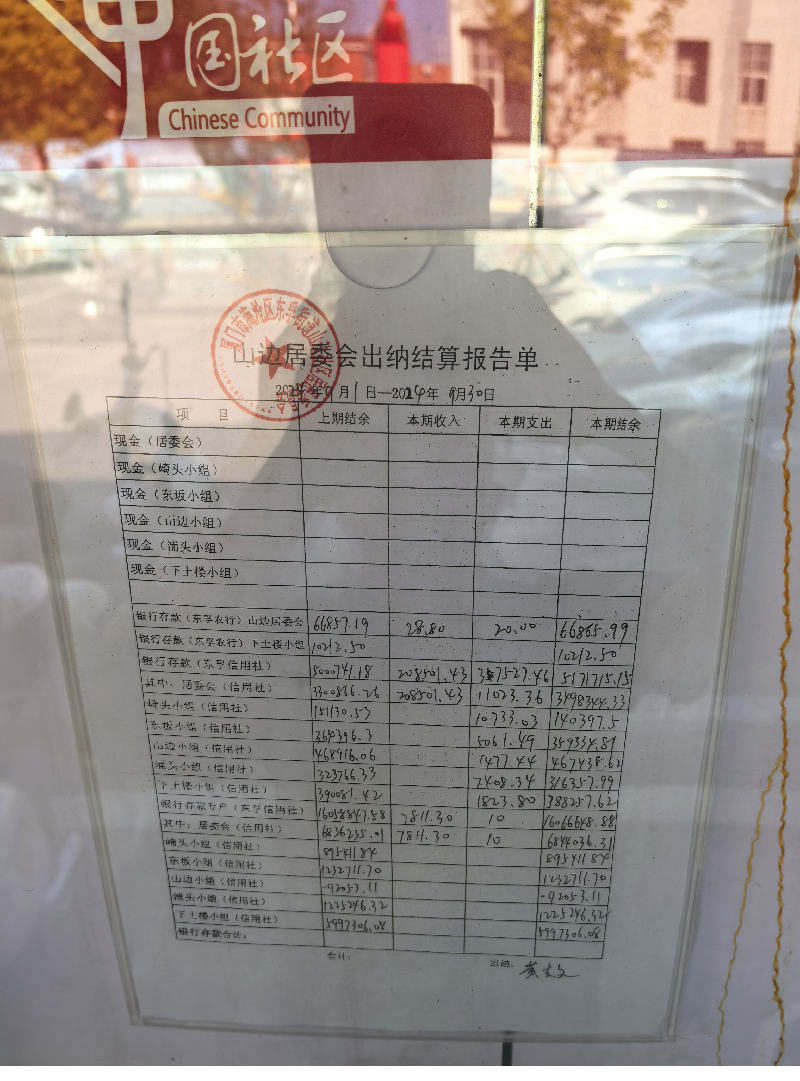 中国社区
Chinese Community
山边居委会出纳结算报告单
2024年9月1日—2024年9月30日
项 目 上期结余 本期收入 本期支出 本期结余
现金（居委会）
现金（崎头小组）
现金（东坂小组）
现金（山边小组）
现金（浦头小组）
现金（下土楼小组）
银行存款（东孚农行）山边居委会 66857.19 28.80 20.00 66865.99
银行存款（东孚农行）下土楼小组 10212.50 10212.50
银行存款（东孚信用社） 5000741.18 208501.43 37527.46 5171715.15
其中：居委会（信用社） 3300866.26 208501.43 11023.36 3498344.33
崎头小组（信用社） 151130.53 10733.03 140397.5
东坂小组（信用社） 364396.3 5061.49 359334.81
山边小组（信用社） 468916.06 1477.44 467438.62
浦头小组（信用社） 323766.33 7408.34 316357.99
下土楼小组（信用社） 390081.42 1823.80 388257.62
银行存款专户（东孚信用社） 16058847.58 7811.30 10 16066648.88
其中：居委会（信用社） 6836235.01 7811.30 10 6844036.31
崎头小组（信用社） 895411.84 895411.84
东坂小组（信用社） 1232711.70 1232711.70
山边小组（信用社） -92053.11 -92053.11
浦头小组（信用社） 1225246.32 1225246.32
下土楼小组（信用社） 5997306.08 5997306.08
银行存款合计：
会计： 出纳：